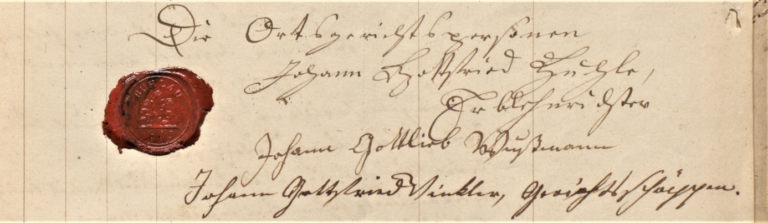 Die Ortsgerichtspersonen
Johann Gottfried
Erblehnrichter
Johann Gottlieb Wußmann
Johann Gottfried Winkler, Gerichtsschöppen.